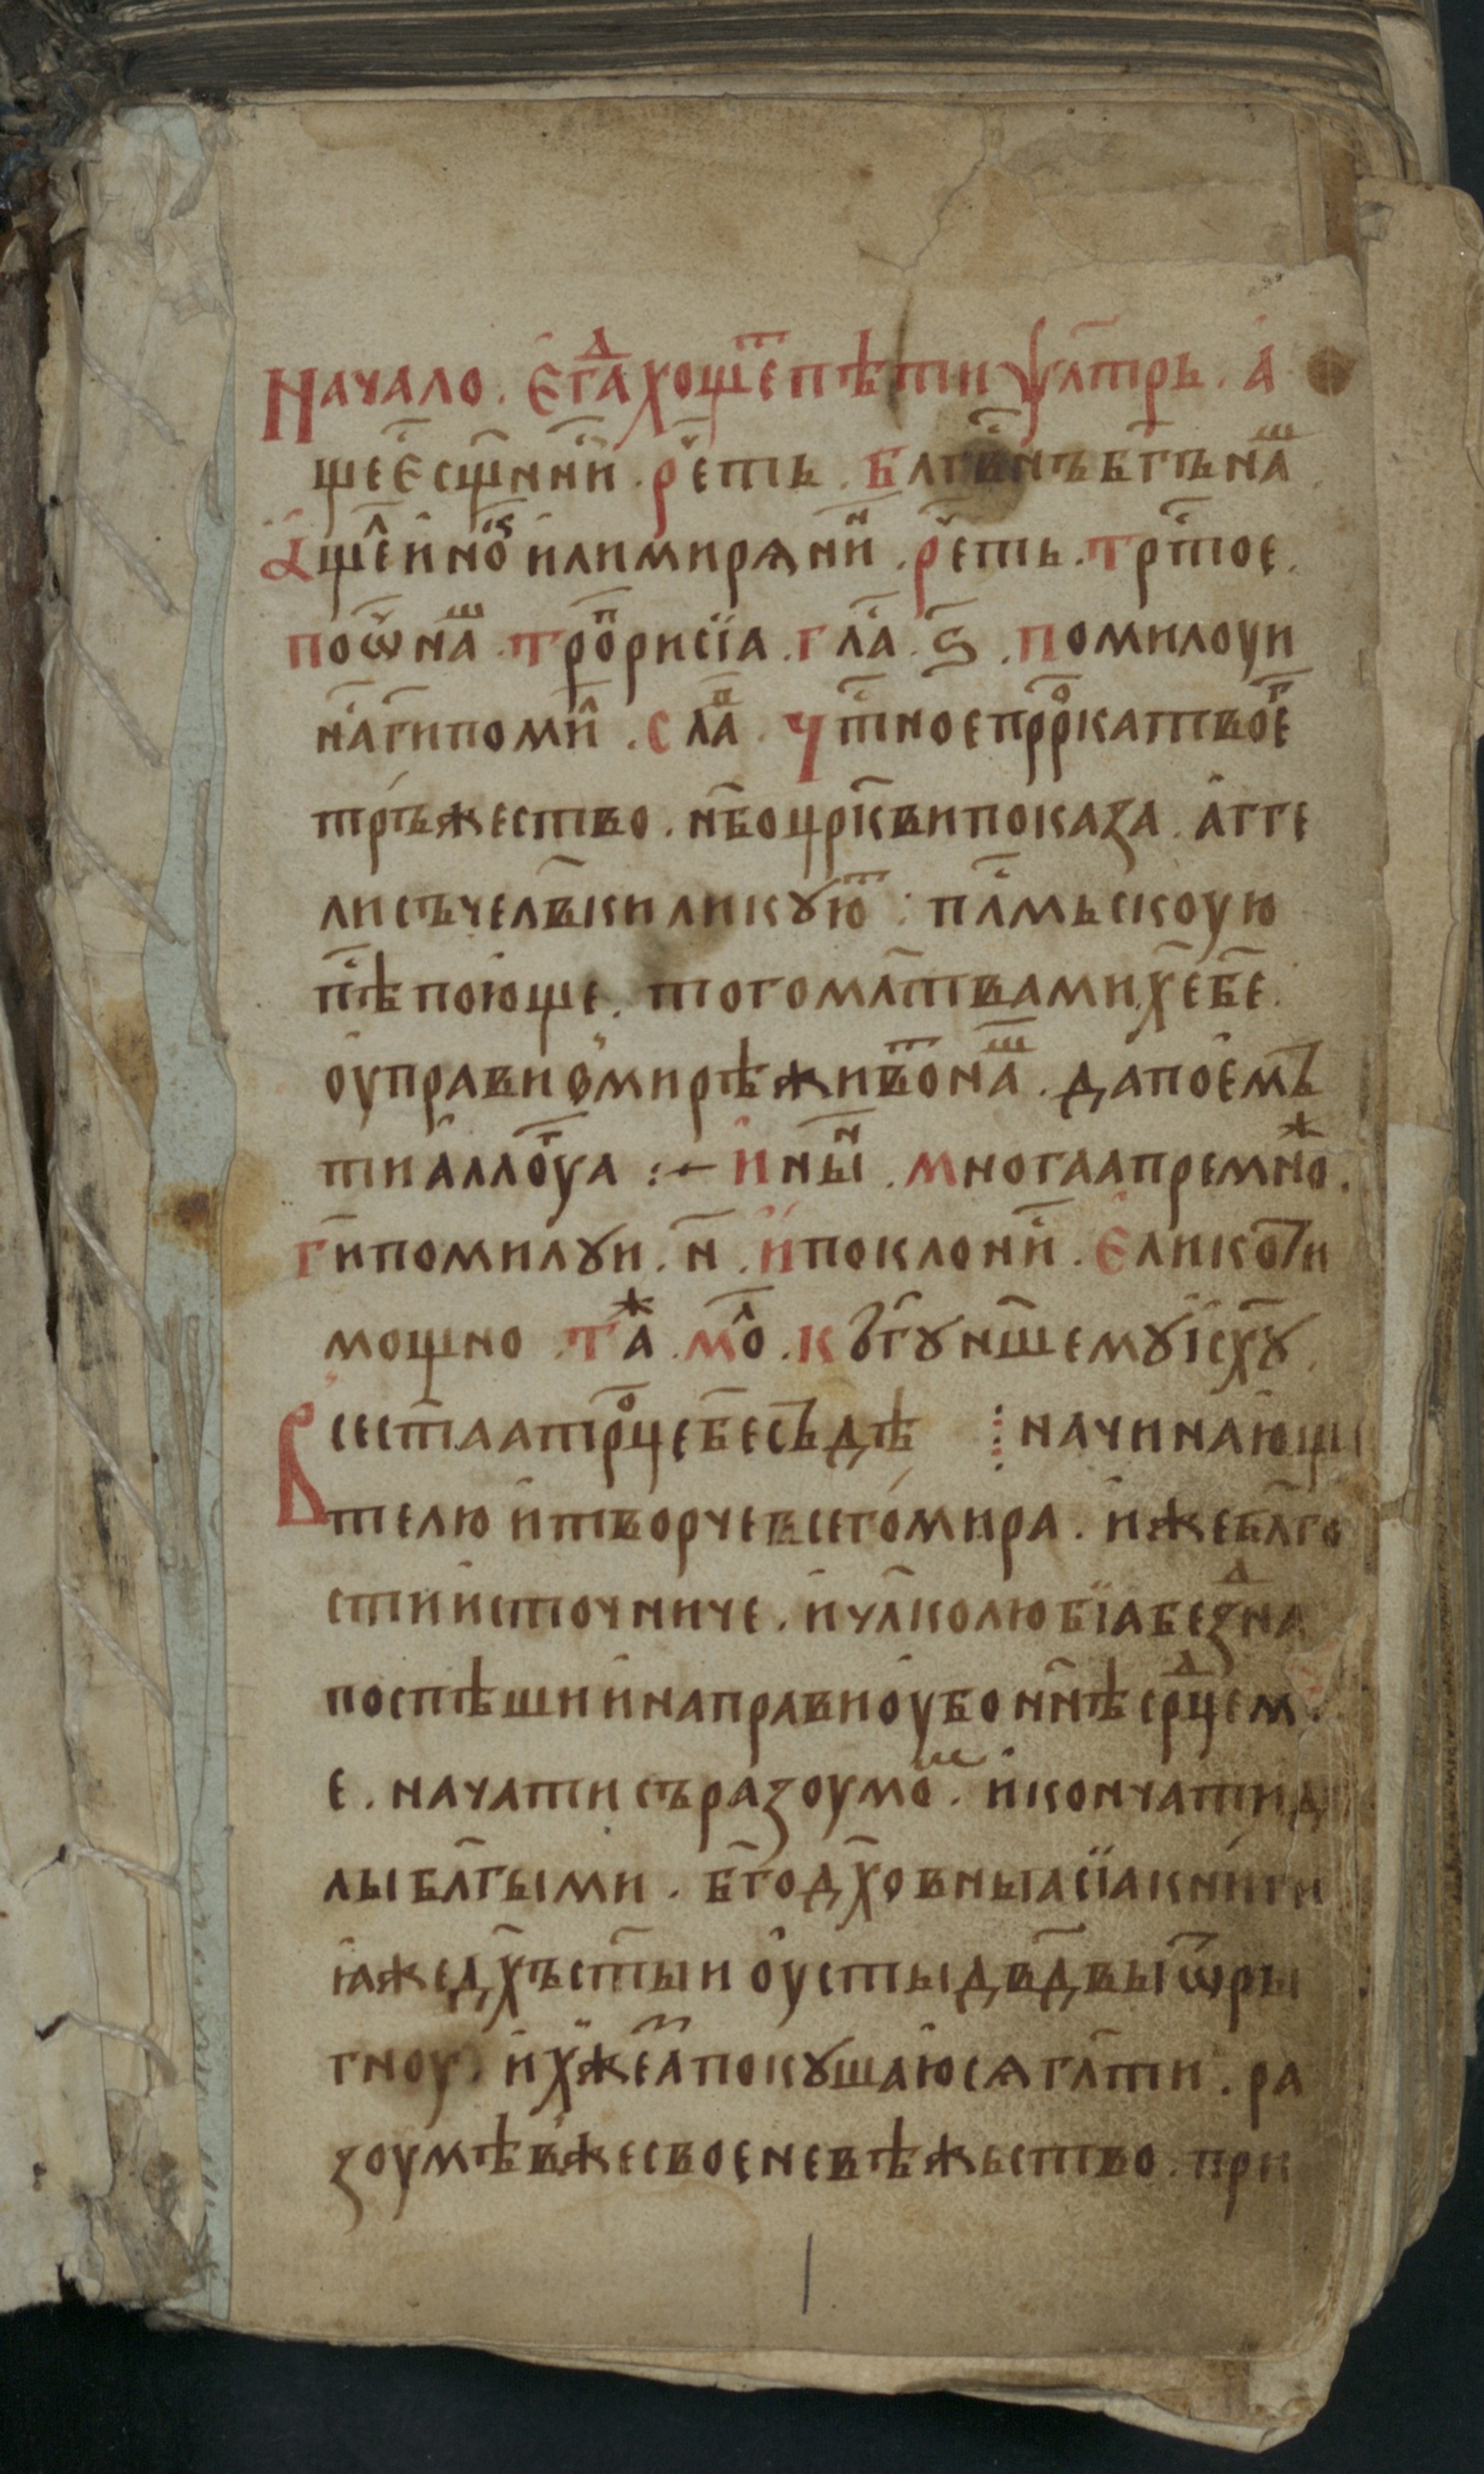 Начало. Єгⷣа хощеⷮ пѣти ѱл҃трь. а
ще єсщ҃нни҃. рⷱ҇еть. Бл҃гвⷭ҇нъ б҃гъ наⷲ҇
Аще́ иноⷦ҇ или мирѧниⷩ҇. рⷱ҇еть. Трⷭ҇тое.
по ѿ наⷲ҇. Троⷫ҇ри сїа. глⷭ҇а. ѕ҃. Помилоуи
наⷭ҇ г҃и поми. Слаⷡ҇. Чтⷭ҇ное прⷪ҇рока твоеⷢ҇
тръжество. нб҃о цр҃кви показа. агге
ли съ чел҃вки ликꙋюⷮ: пл҃мьскоую
пⷭ҇ѣ поюще. того мл҃твами х҃е б҃е.
оуправи ѡ мирѣ живоⷮ наⷲ҇. да поемъ
ти аллоⷢ҇уа :~ И ныⷩ҇. Многаа премноⷤ.
Г҃и помилꙋи. н҃. И поклониⷭ҇. Єлико ти
мощно. Таⷤ. Мⷧ҇о. К бг҃ꙋ нш҃емꙋ іс х҃ꙋ.
Всест҃аа трⷪ҇це б҃е съдѣ ⁝ начинающи
телю и творче всего мира. иже бл҃го
сти источниче. и чл҃колюбїа безⷣна
поспѣши и направи оубо нн҃ѣ срⷣцем.
е. начати съ разоумоⷨ. и кончати д
лы бл҃гыми. бг҃одх҃овныа сїа книги
іаже дх҃ъ ст҃ыи оусты дв҃двы ѿры
гноу. ихже аⷥ покꙋшаюсѧ гл҃ти. ра
зоумѣв же свое невѣжьство. при